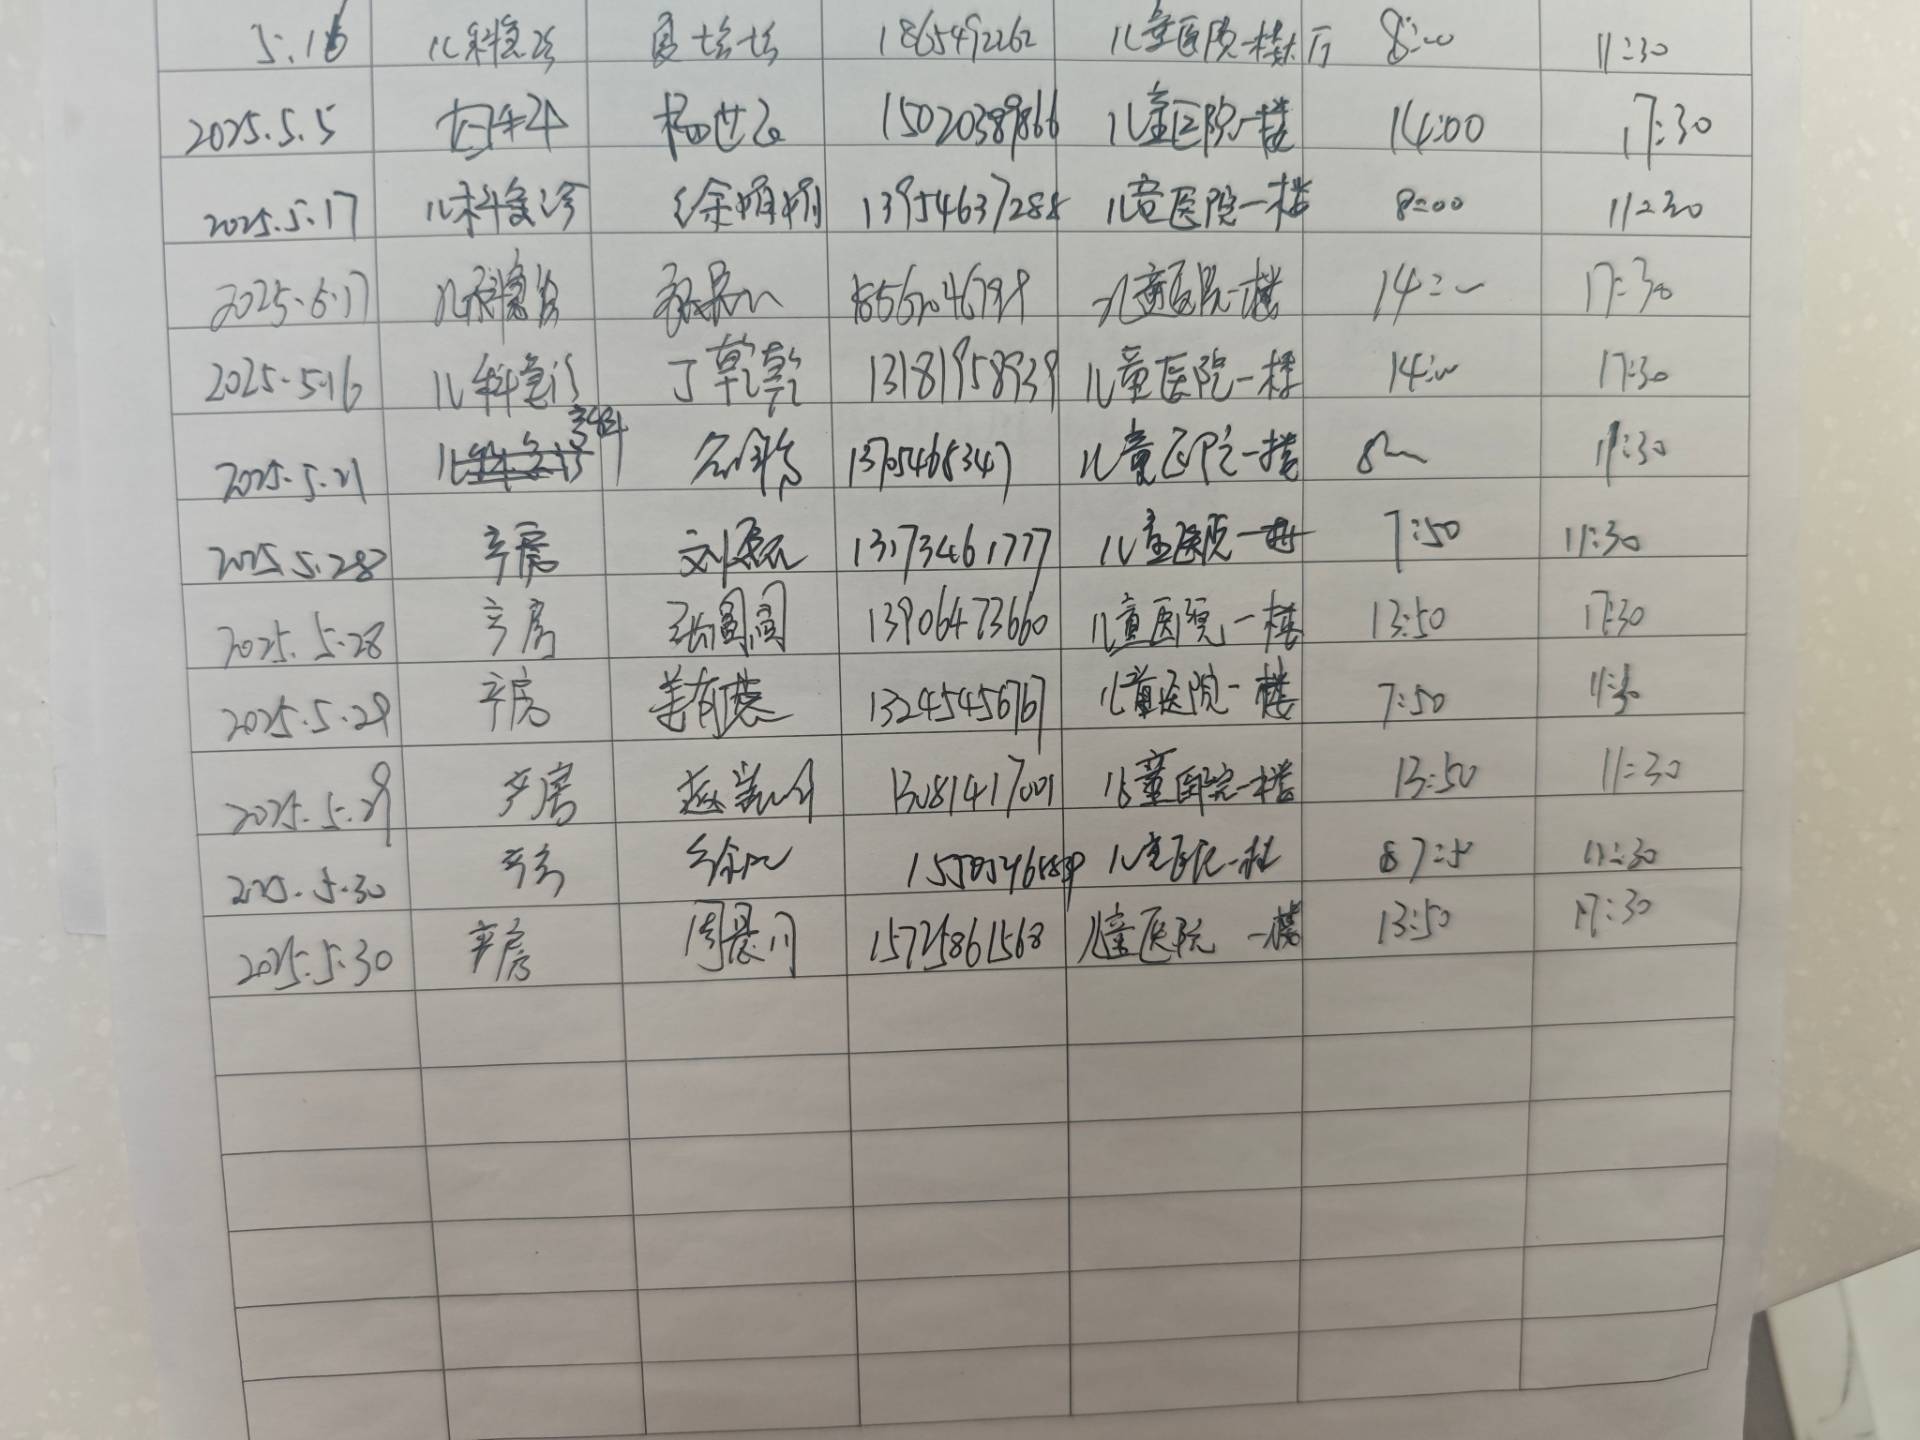 5.16 儿科急诊 1865492262 儿童医院一楼大厅 8:00 11:30
2025.5.5 妇科 杨世 15020389866 儿童医院一楼 14:00 17:30
2025.5.17 儿科急诊 徐娟娟 13954637288 儿童医院一楼 8:00 11:30
2025.5.17 儿科急诊 儿童医院一楼 14:00 17:30
2025.5.16 儿科急诊 丁乾乾 13181958939 儿童医院一楼 14:00 17:30
2025.5.21 儿科急诊 13705468347 儿童医院一楼 8:00 11:30
2025.5.28 产房 刘 13173461777 儿童医院一楼 7:50 11:30
2025.5.28 产房 张圆圆 13906473660 儿童医院一楼 13:50 17:30
2025.5.29 产房 姜有 13245456767 儿童医院一楼 7:50 11:30
2025.5.29 产房 赵 13081417001 儿童医院一楼 13:50 11:30
2025.5.30 产房 徐 儿童医院一楼 8 7:50 11:30
2025.5.30 产房 周晨川 15725861568 儿童医院一楼 13:50 17:30